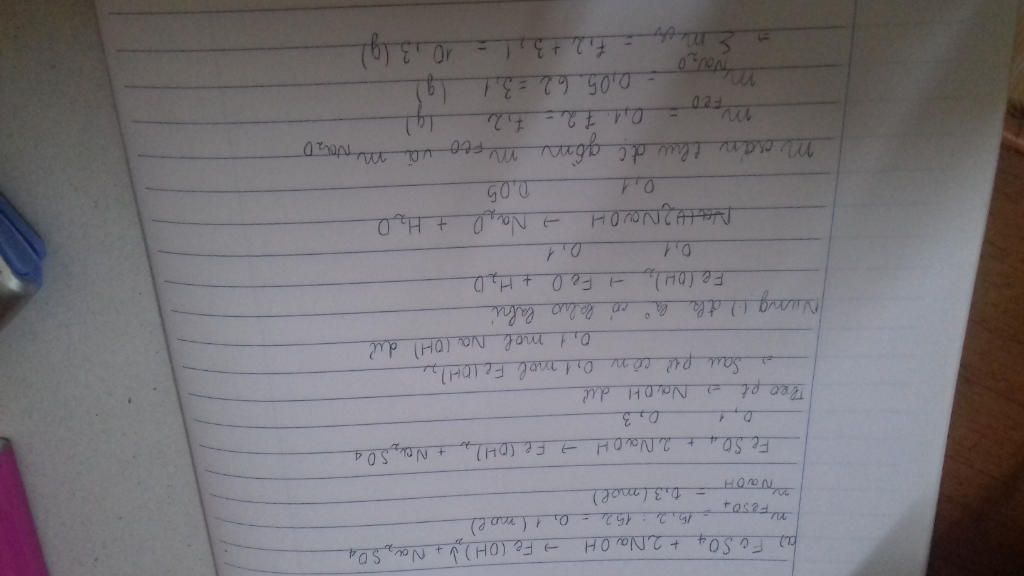 a) FeSO₄ + 2NaOH → Fe(OH)₂↓ + Na₂SO₄
n FeSO₄ = 15,2 : 152 = 0,1 (mol)
n NaOH = 0,3 (mol)
FeSO₄ + 2NaOH → Fe(OH)₂ + Na₂SO₄
0,1 0,3
Theo pt → NaOH dư
→ Sau pứ còn 0,1 mol Fe(OH)₂
0,1 mol Na(OH) dư
Nung () đk k° có
Fe(OH)₂ → FeO + H₂O
0,1 0,1
2NaOH → Na₂O + H₂O
0,1 0,05
m rắn thu đc gồm m FeO và m Na₂O
m FeO = 0,1.72 = 7,2 (g)
m Na₂O = 0,05.62 = 3,1 (g)
→ Σ m cr = 7,2 + 3,1 = 10,3 (g)